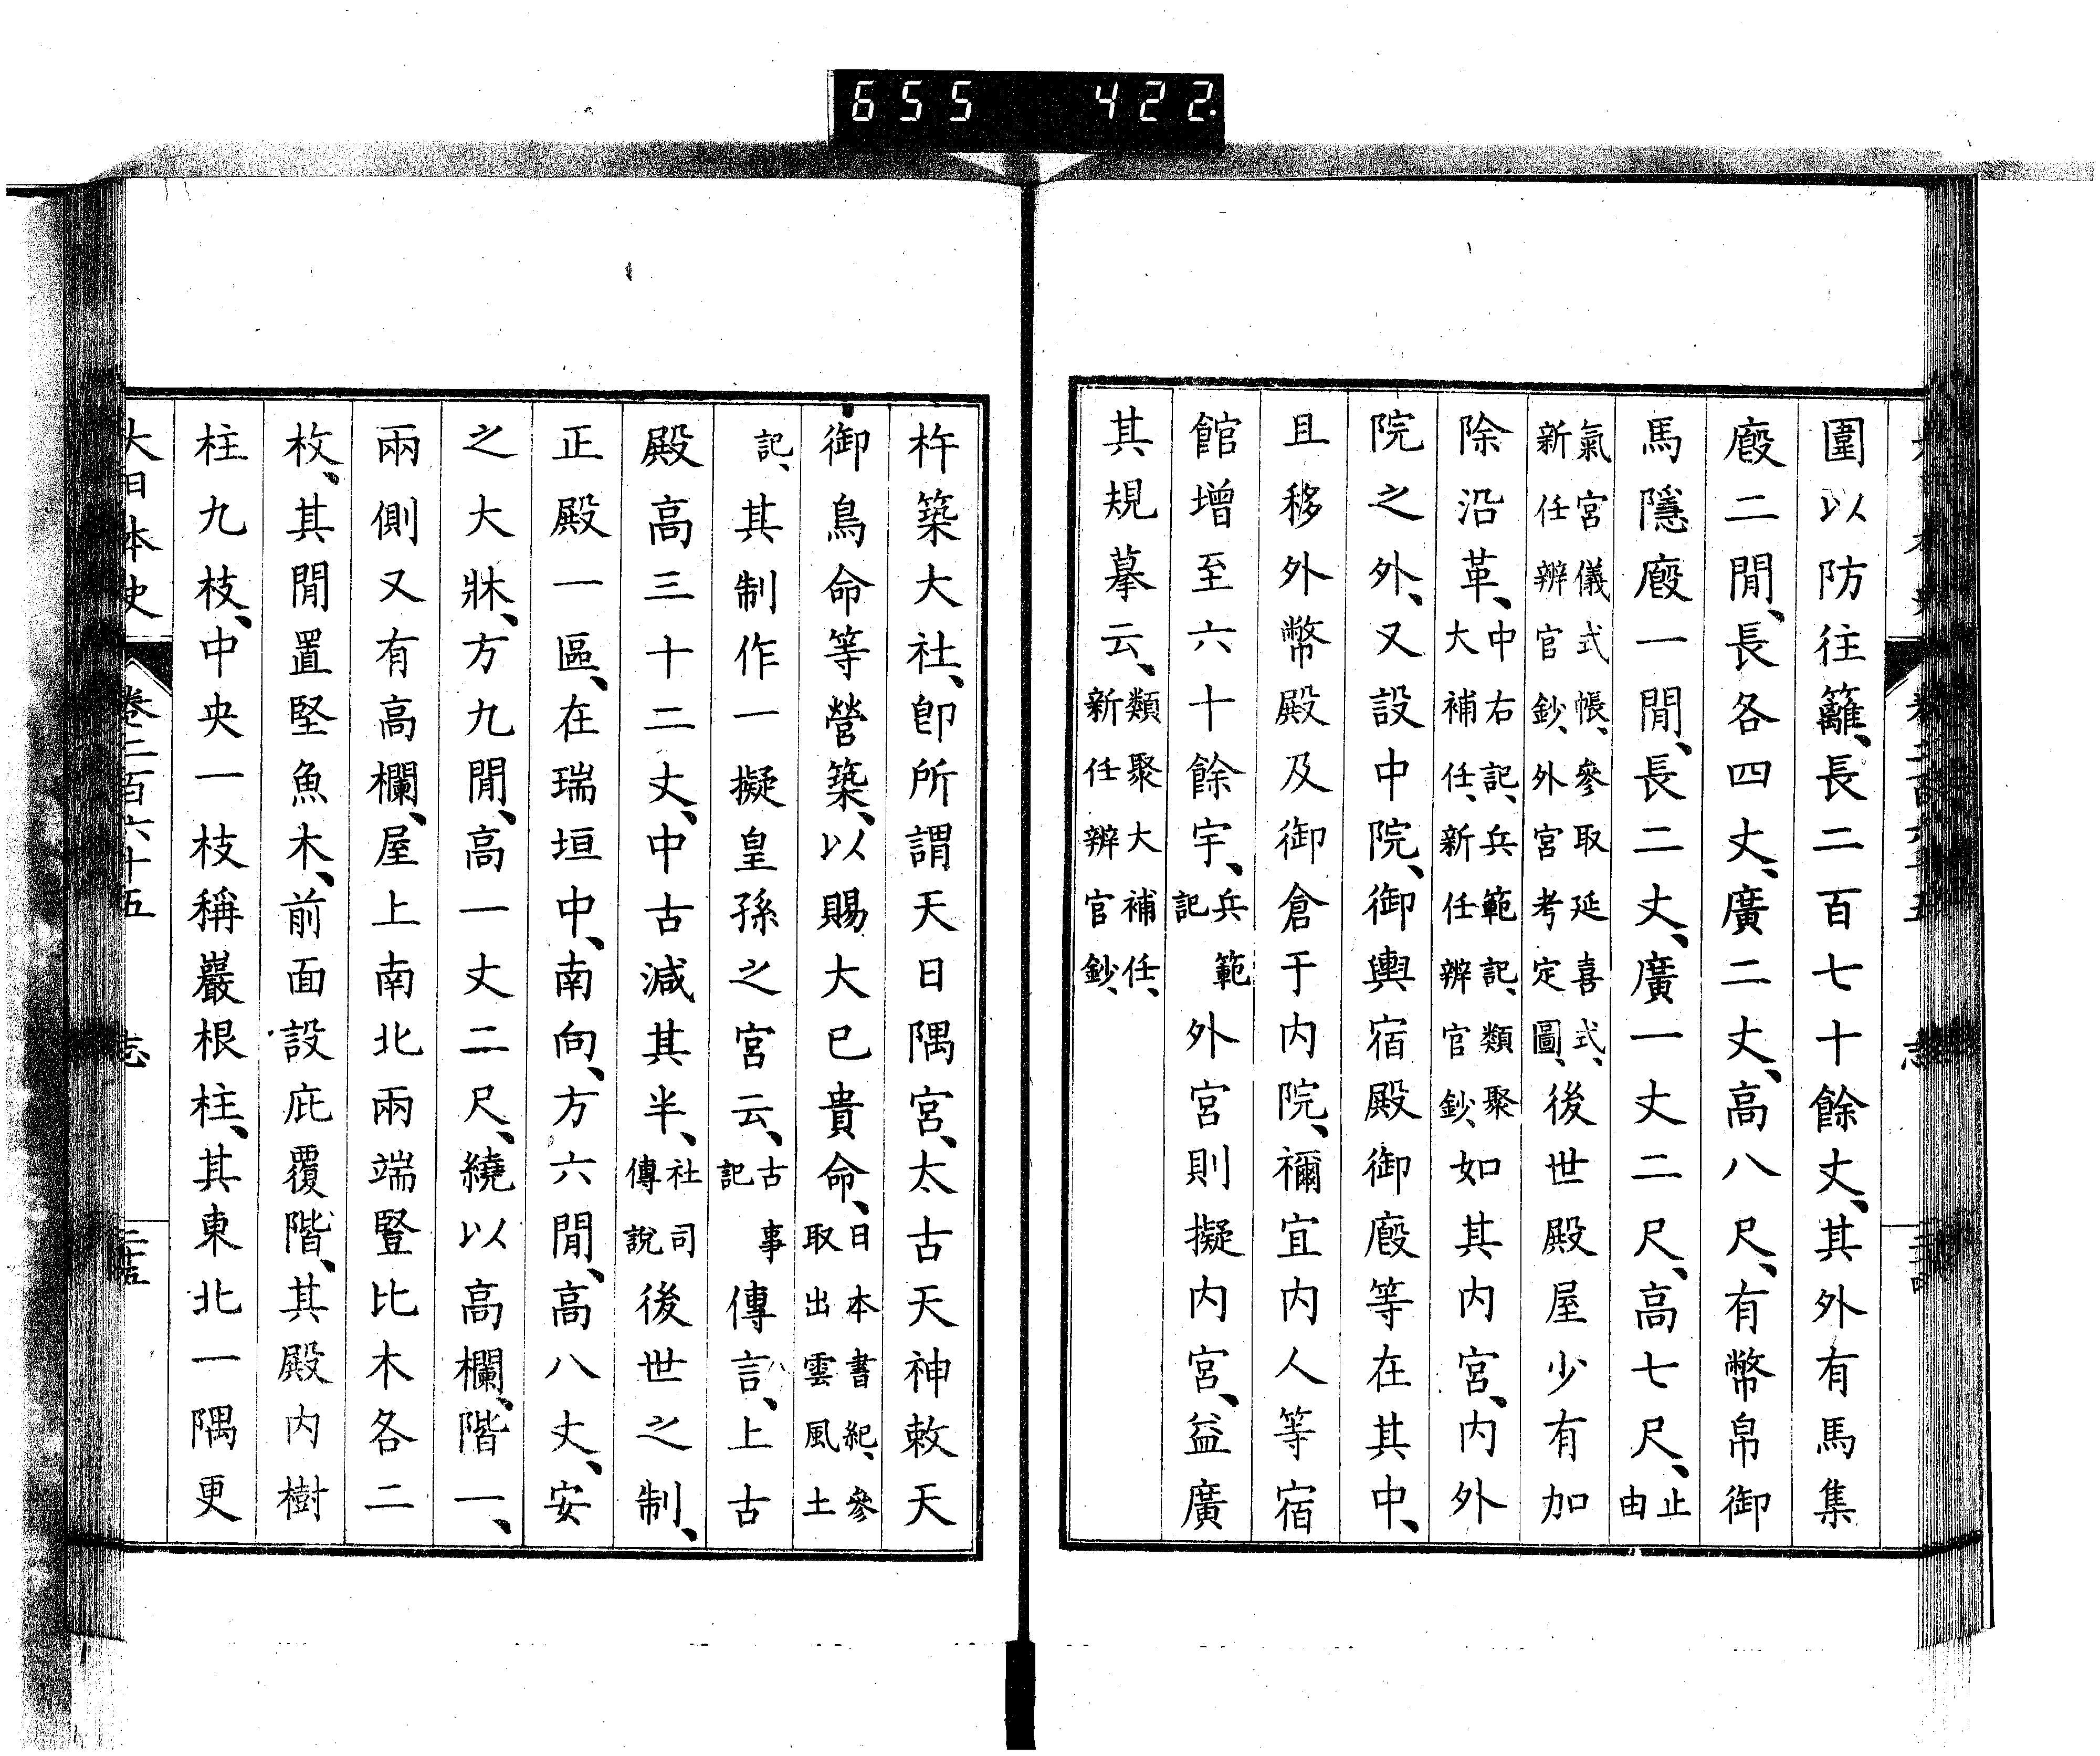 655 422.
圍以防往籬、長二百七十餘丈、其外有馬集
廄二閒、長各四丈、廣二丈、高八尺、有幣帛御
馬隱廄一閒、長二丈、廣一丈二尺、高七尺、止由
氣宮儀式帳、參取延喜式、新任辨官鈔、外宮考定圖、後世殿屋少有加
除沿革、中右記、兵範記、類聚大補任、新任辨官鈔、如其内宮、内外
院之外、又設中院、御輿宿殿御廄等在其中、
且移外幣殿及御倉于内院、禰宜内人等宿
館增至六十餘宇、兵範記外宮則擬内宮、益廣
其規摹云、類聚大補任、新任辨官鈔、
杵築大社、卽所謂天日隅宮、太古天神敕天
御鳥命等營築、以賜大已貴命、日本書紀、參取出雲風土
記、其制作一擬皇孫之宮云、古事記傳言、上古
殿高三十二丈、中古減其半、社司傳說後世之制、
正殿一區、在瑞垣中、南向、方六閒、高八丈、安
之大牀、方九閒、高一丈二尺、繞以高欄、階一、
兩側又有高欄、屋上南北兩端豎比木各二
枚、其閒置堅魚木、前面設庇覆階、其殿内樹
柱九枝、中央一枝稱巖根柱、其東北一隅更
大日本史 卷二百六十五 志